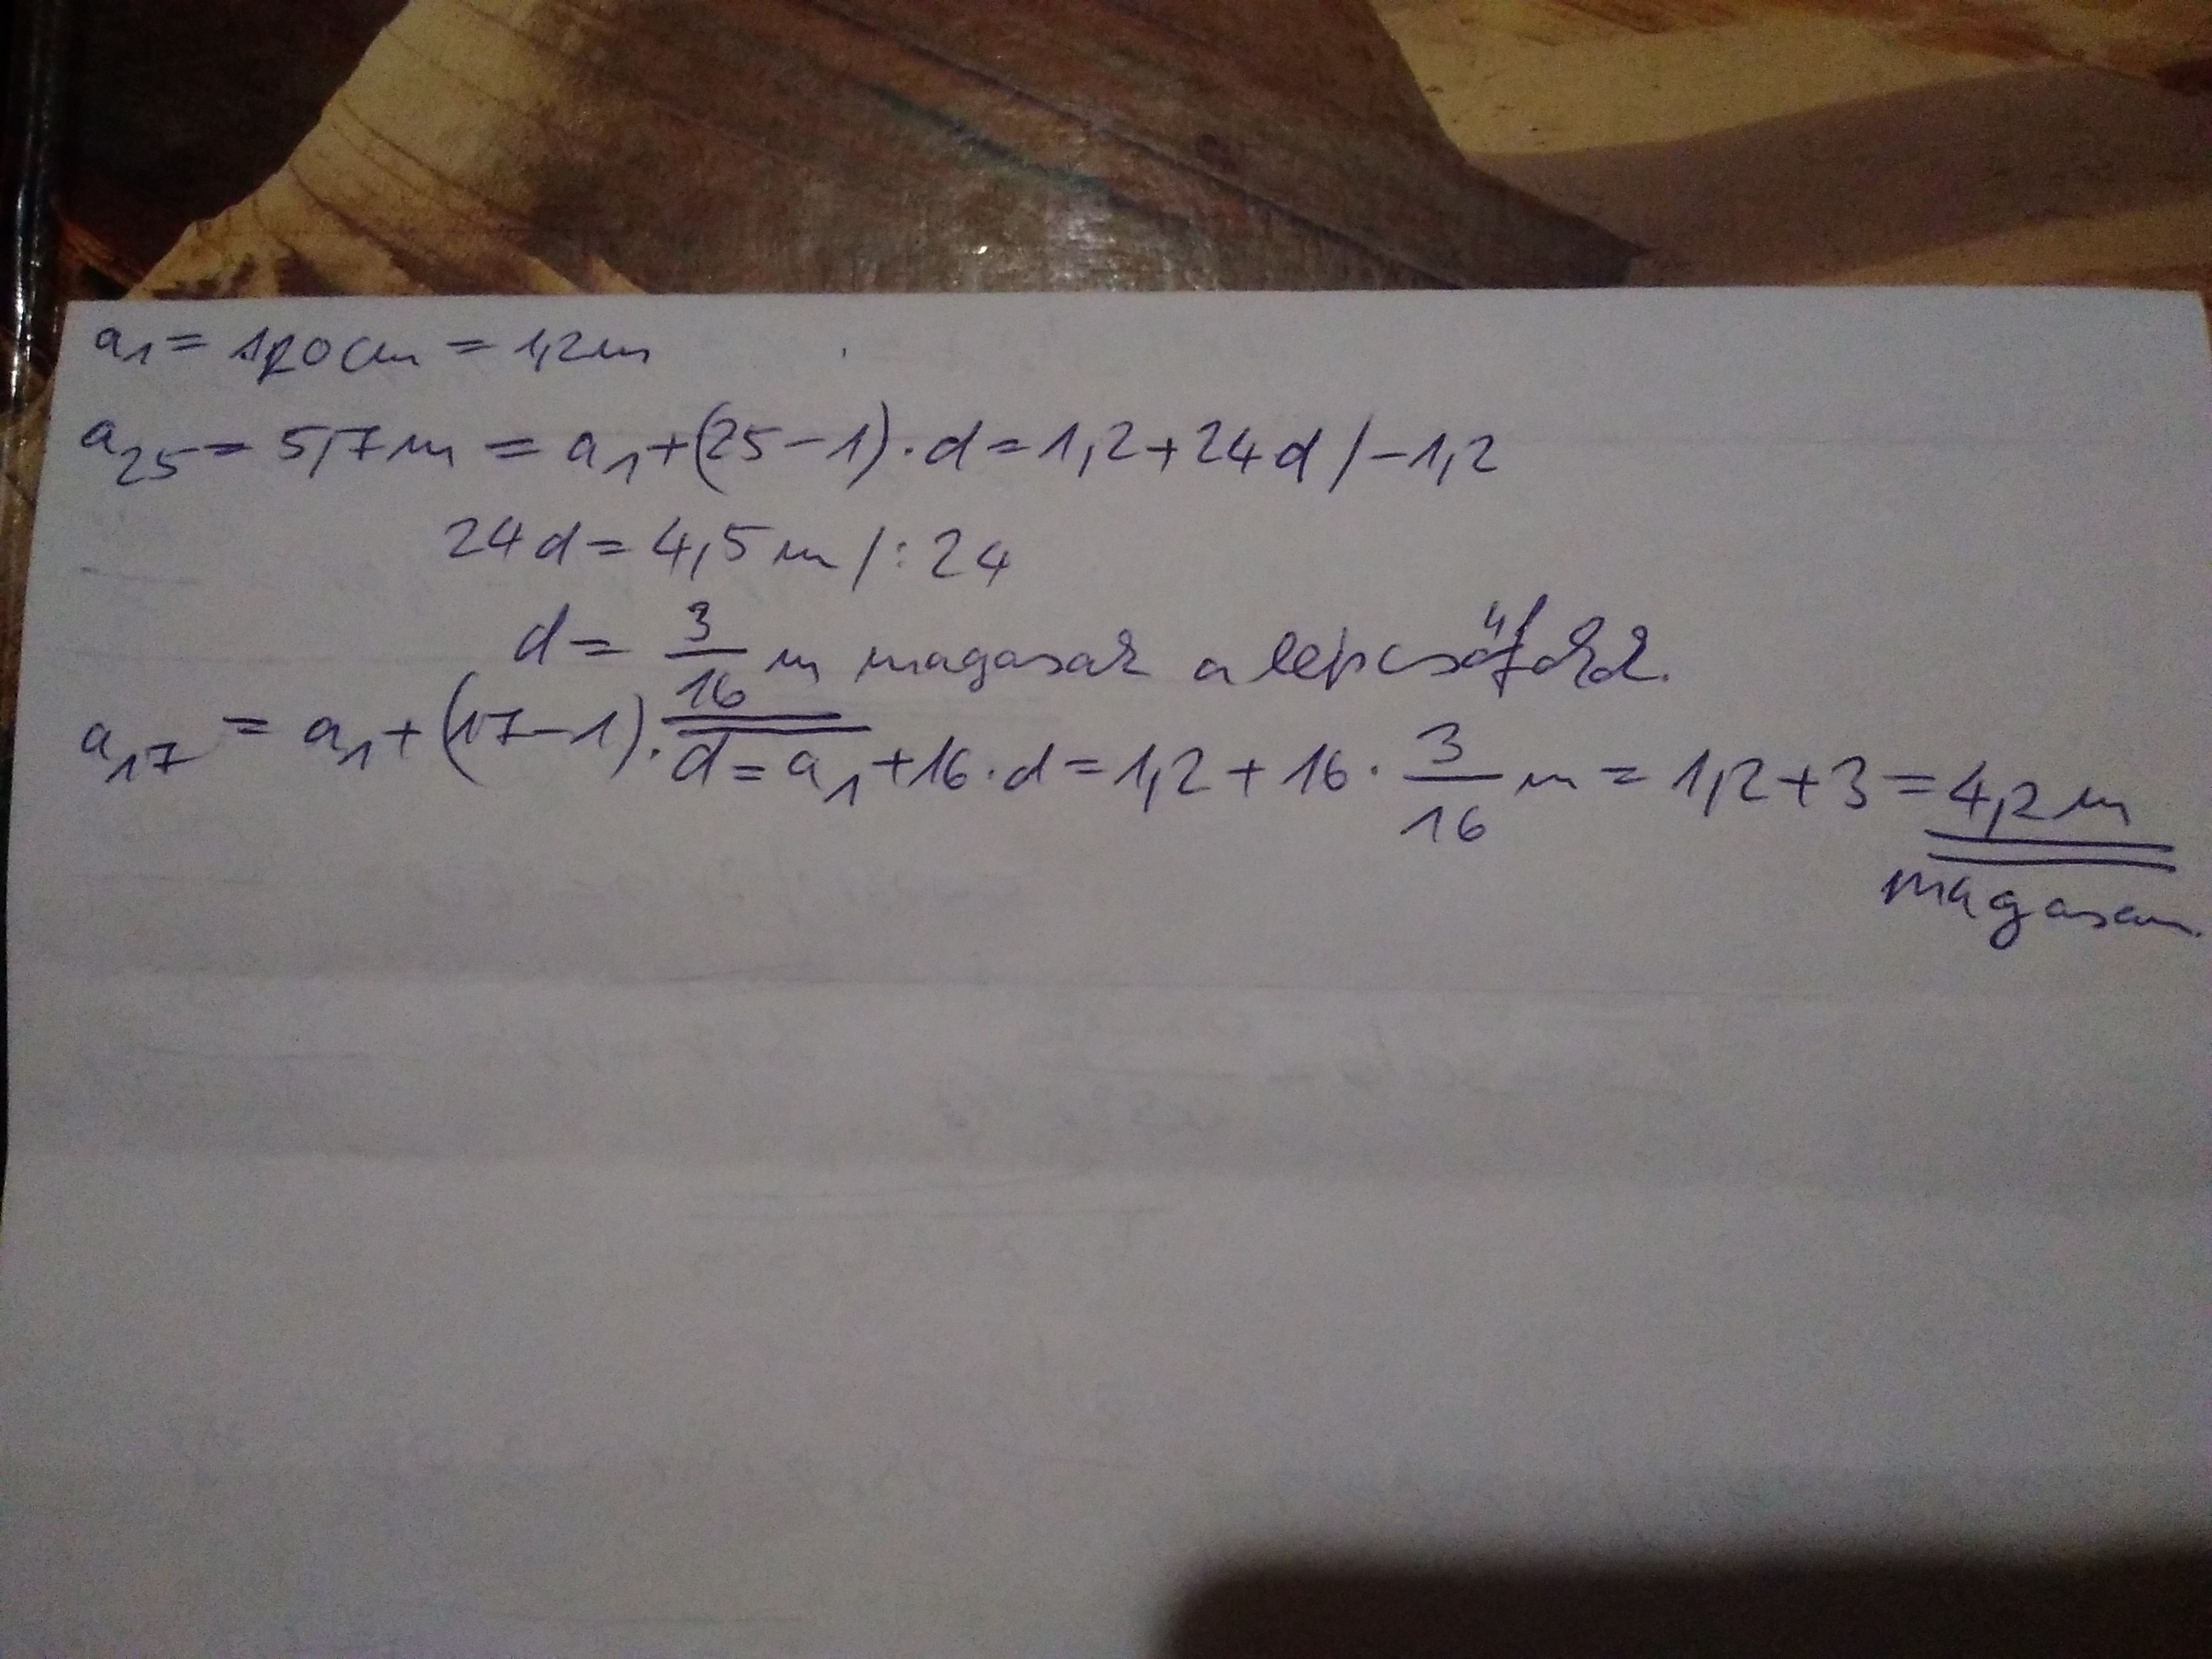 a₁ = 120 cm = 1,2 m
a₂₅ = 5,7 m = a₁ + (25 - 1) · d = 1,2 + 24d / -1,2
24d = 4,5 m / : 24
d = 3/16 m magasak a lépcsőfokok.
a₁₇ = a₁ + (17 - 1) · d = a₁ + 16 · d = 1,2 + 16 · 3/16 m = 1,2 + 3 = 4,2 m
magasan.